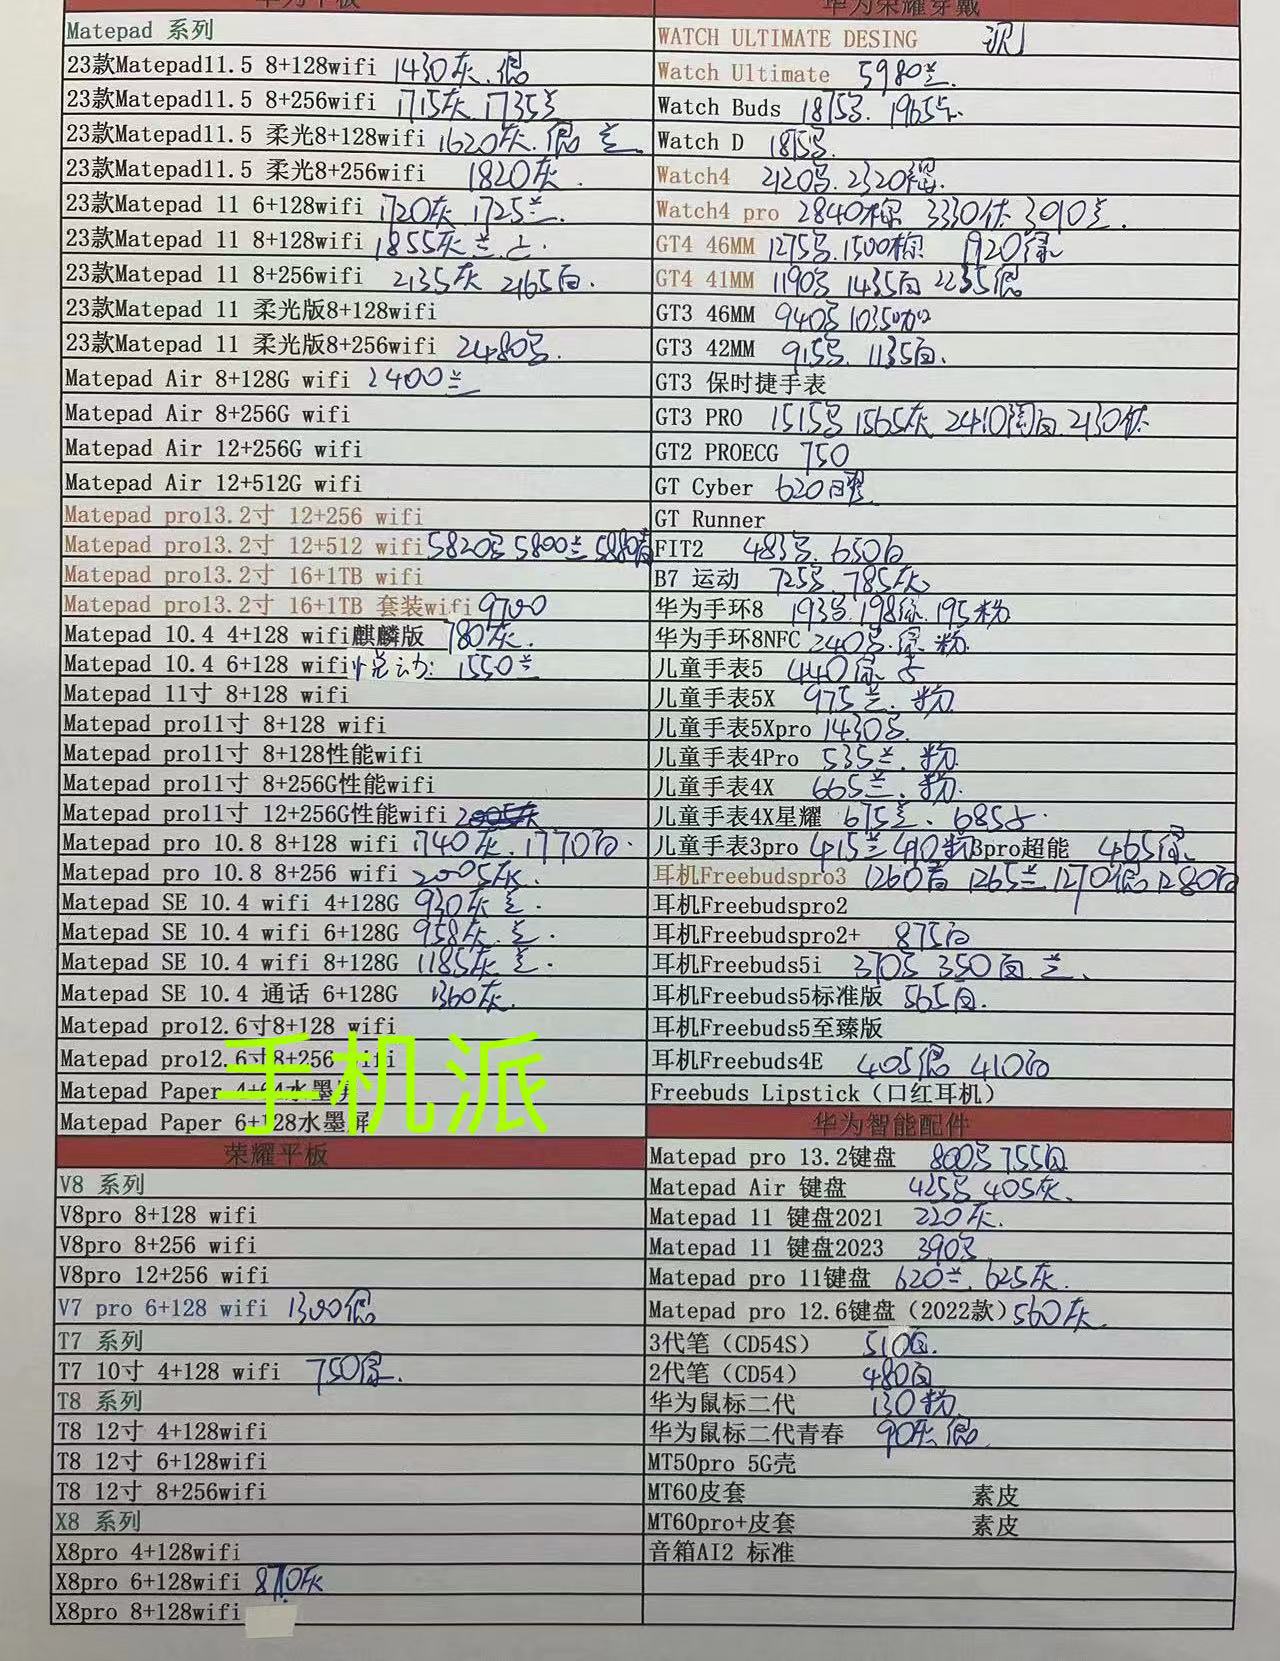 华为平板
Matepad 系列
23款Matepad11.5 8+128wifi 1430灰.银
23款Matepad11.5 8+256wifi 1715灰 1735兰
23款Matepad11.5 柔光8+128wifi 1620灰.银 兰
23款Matepad11.5 柔光8+256wifi 1820灰.
23款Matepad 11 6+128wifi 1720灰 1725兰.
23款Matepad 11 8+128wifi 1855灰 兰
23款Matepad 11 8+256wifi 2135灰 2165白.
23款Matepad 11 柔光版8+128wifi
23款Matepad 11 柔光版8+256wifi 2480
Matepad Air 8+128G wifi 2400兰
Matepad Air 8+256G wifi
Matepad Air 12+256G wifi
Matepad Air 12+512G wifi
Matepad pro13.2寸 12+256 wifi
Matepad pro13.2寸 12+512 wifi 5820 5800兰 5880青
Matepad pro13.2寸 16+1TB wifi
Matepad pro13.2寸 16+1TB 套装wifi 9700
Matepad 10.4 4+128 wifi麒麟版 780灰.
Matepad 10.4 6+128 wifi 悦动: 1550兰
Matepad 11寸 8+128 wifi
Matepad pro11寸 8+128 wifi
Matepad pro11寸 8+128性能wifi
Matepad pro11寸 8+256G性能wifi
Matepad pro11寸 12+256G性能wifi
Matepad pro 10.8 8+128 wifi 1740灰.1770白.
Matepad pro 10.8 8+256 wifi 2005灰.
Matepad SE 10.4 wifi 4+128G 930灰 兰.
Matepad SE 10.4 wifi 6+128G 958灰.兰.
Matepad SE 10.4 wifi 8+128G 1185灰 兰.
Matepad SE 10.4 通话 6+128G 1360灰.
Matepad pro12.6寸8+128 wifi
Matepad pro12.6寸8+256 wifi
Matepad Paper 4+64水墨屏
Matepad Paper 6+128水墨屏
手机派
荣耀平板
V8 系列
V8pro 8+128 wifi
V8pro 8+256 wifi
V8pro 12+256 wifi
V7 pro 6+128 wifi 1300银
T7 系列
T7 10寸 4+128 wifi 750银.
T8 系列
T8 12寸 4+128wifi
T8 12寸 6+128wifi
T8 12寸 8+256wifi
X8 系列
X8pro 4+128wifi
X8pro 6+128wifi 870灰
X8pro 8+128wifi
华为荣耀穿戴
WATCH ULTIMATE DESING 现
Watch Ultimate 5980兰.
Watch Buds 1875 1965
Watch D 1815
Watch4 2120 2320棕.
Watch4 pro 2840棕 3330钛 3910兰.
GT4 46MM 1275 1500棕 1920绿
GT4 41MM 1190 1435白 2235银
GT3 46MM 940 1035咖
GT3 42MM 915 1135白.
GT3 保时捷手表
GT3 PRO 1515 1565灰 2410陶白 2130钛
GT2 PROECG 750
GT Cyber 620
GT Runner
FIT2 483 650白
B7 运动 725 785灰
华为手环8 193 198绿.195粉
华为手环8NFC 240 绿.粉
儿童手表5 440
儿童手表5X 975兰.粉
儿童手表5Xpro 1430
儿童手表4Pro 535兰.粉
儿童手表4X 665兰.粉.
儿童手表4X星耀 675兰.685
儿童手表3pro 415兰 410粉 3pro超能 465
耳机Freebudspro3 1260青 1265兰 1270银 1280白
耳机Freebudspro2
耳机Freebudspro2+ 875白
耳机Freebuds5i 370 350白 兰.
耳机Freebuds5标准版 565白.
耳机Freebuds5至臻版
耳机Freebuds4E 405银 410白
Freebuds Lipstick（口红耳机）
华为智能配件
Matepad pro 13.2键盘 800 755白
Matepad Air 键盘 425 405灰.
Matepad 11 键盘2021 220灰.
Matepad 11 键盘2023 390
Matepad pro 11键盘 620兰.625灰.
Matepad pro 12.6键盘（2022款）560灰.
3代笔（CD54S） 510白.
2代笔（CD54） 480白
华为鼠标二代 130粉
华为鼠标二代青春 90灰 银
MT50pro 5G壳
MT60皮套 素皮
MT60pro+皮套 素皮
音箱AI2 标准